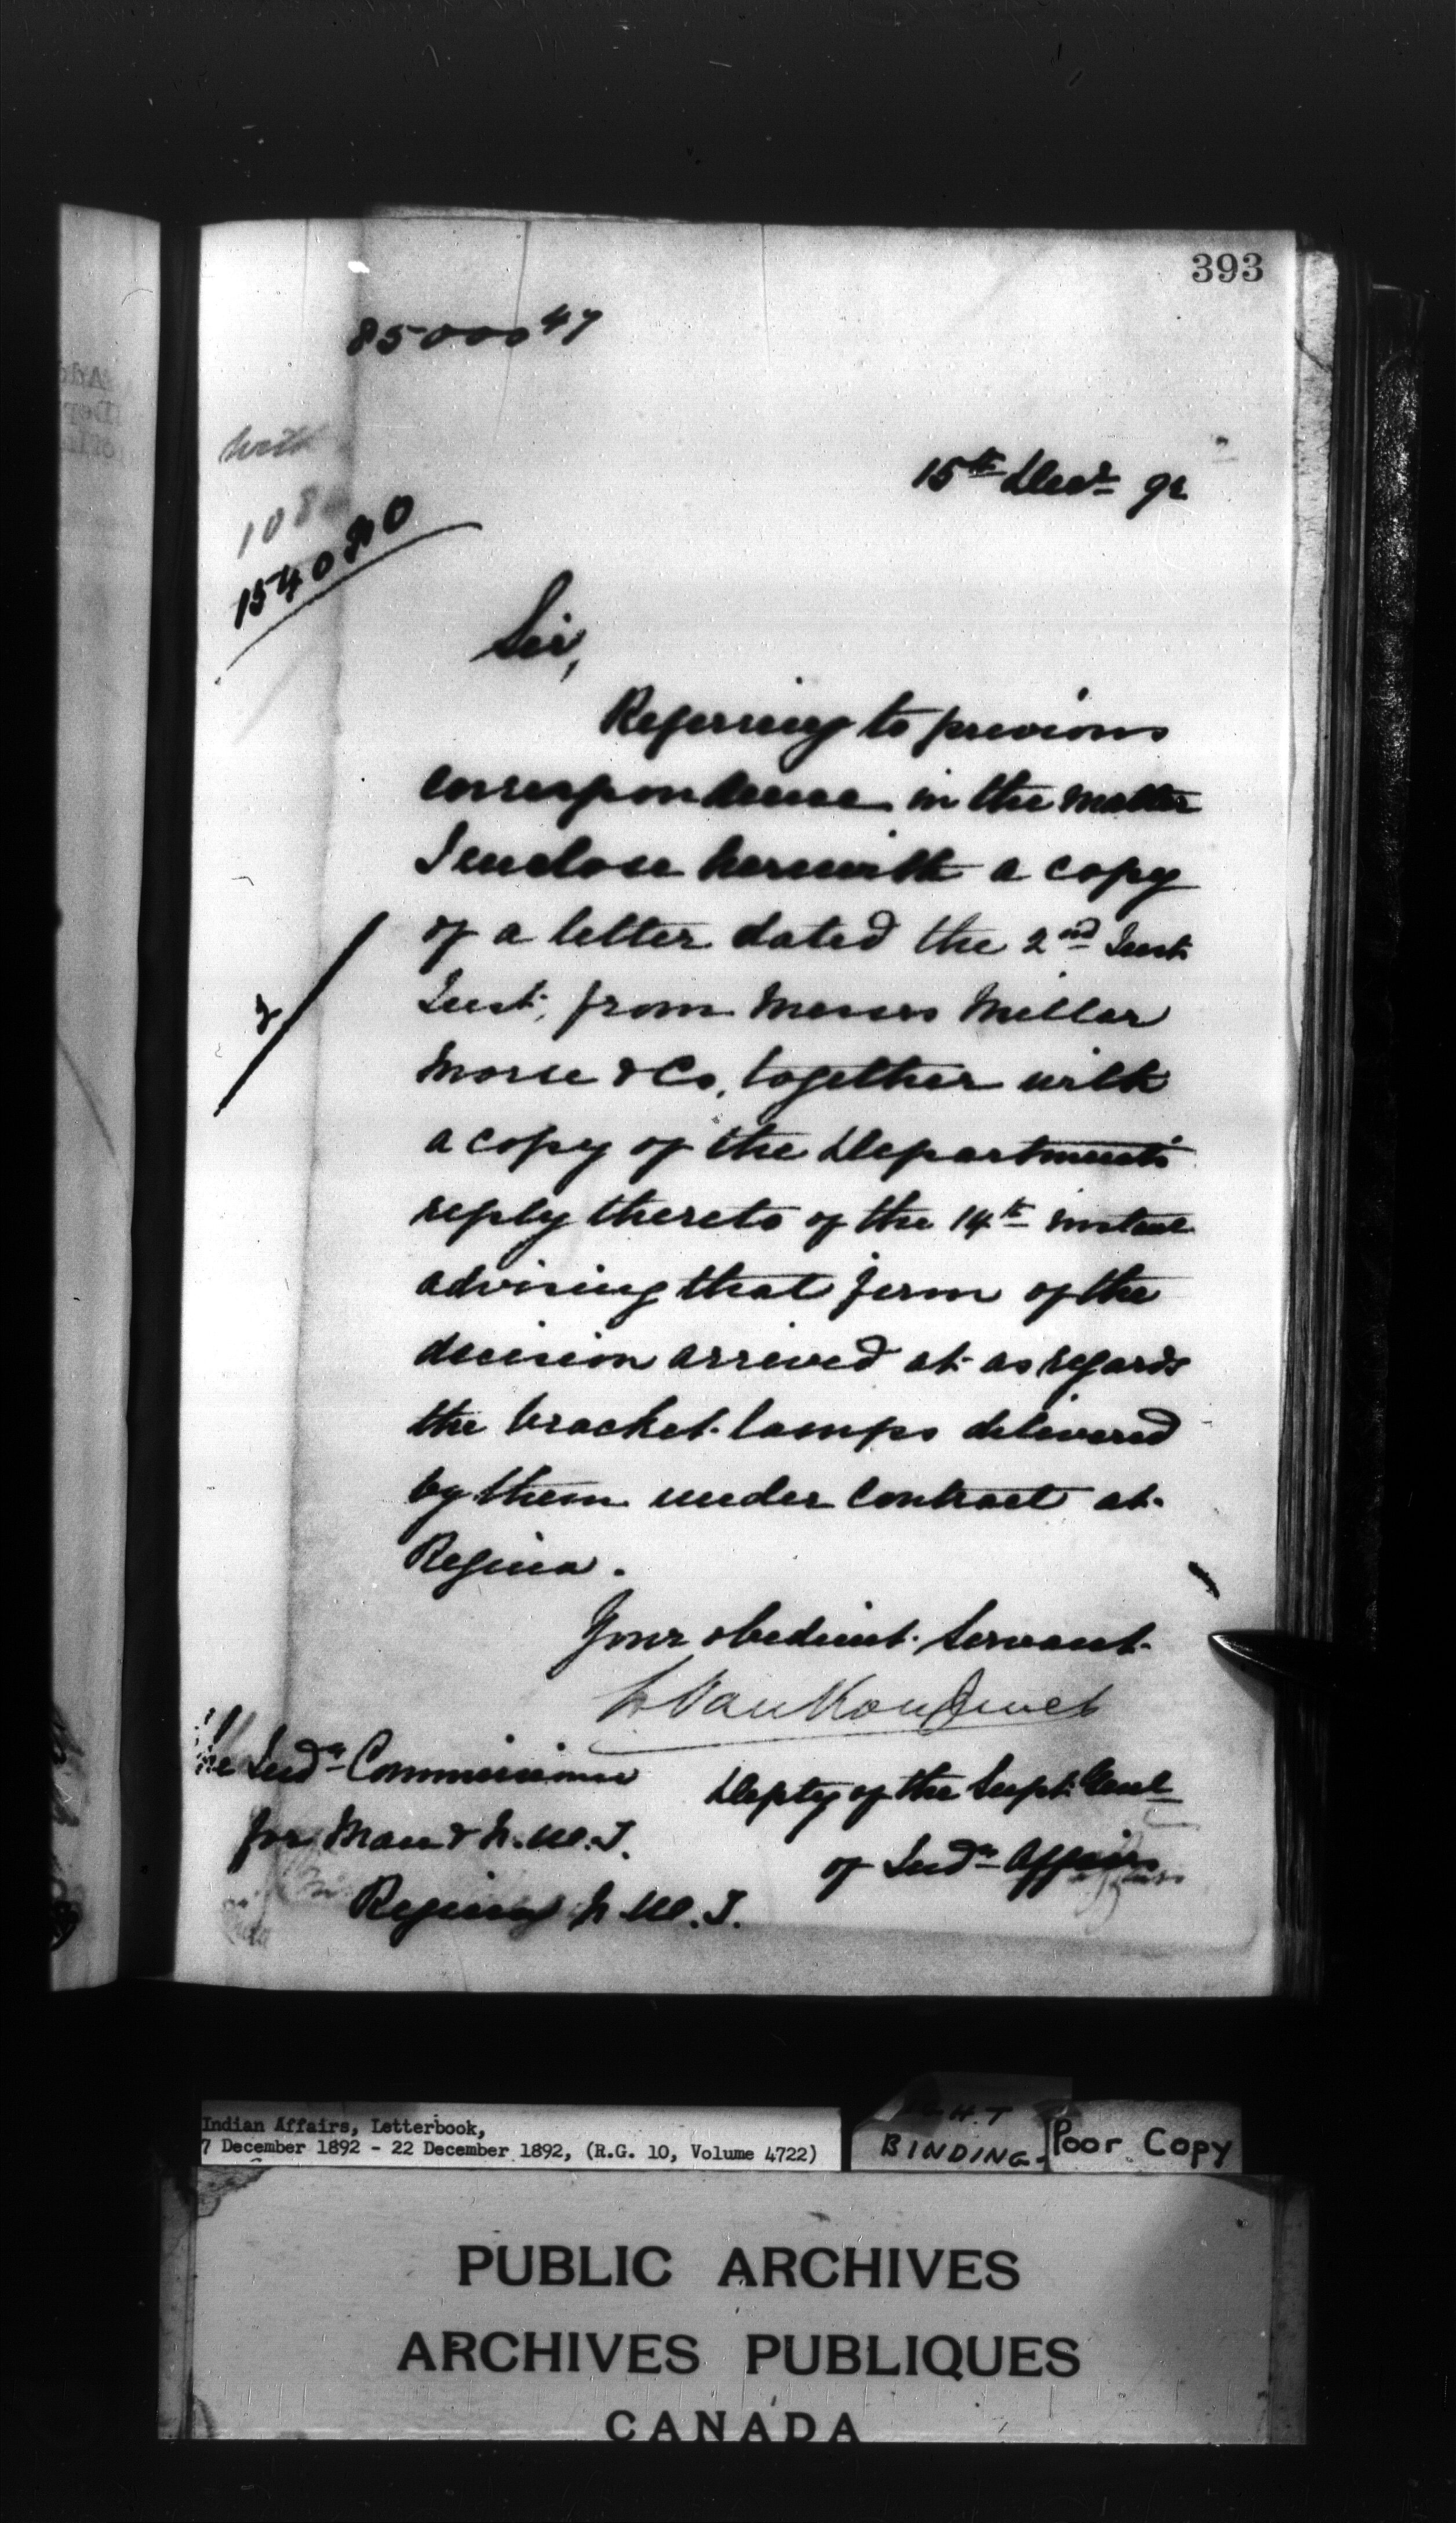 393
85000 47
with
108
154080
15th Decr 92
Sir,
Referring to previous
correspondence in the matter
I enclose herewith a copy
of a letter dated the 2nd Inst
Inst, from Messrs Millar
Morse & Co, together with
a copy of the Department's
reply thereto of the 14th instant
advising that firm of the
decision arrived at as regards
the bracket lamps delivered
by them under contract at
Regina.
Your obedient Servant
L Vankoughnet
Depty of the Supt. Genl
of Indn Affairs
The Indn Commissioner
for Man & N.W.T.
Regina N.W.T.
2
Indian Affairs, Letterbook,
7 December 1892 - 22 December 1892, (R.G. 10, Volume 4722)
BINDING
Poor Copy
PUBLIC ARCHIVES
ARCHIVES PUBLIQUES
CANADA